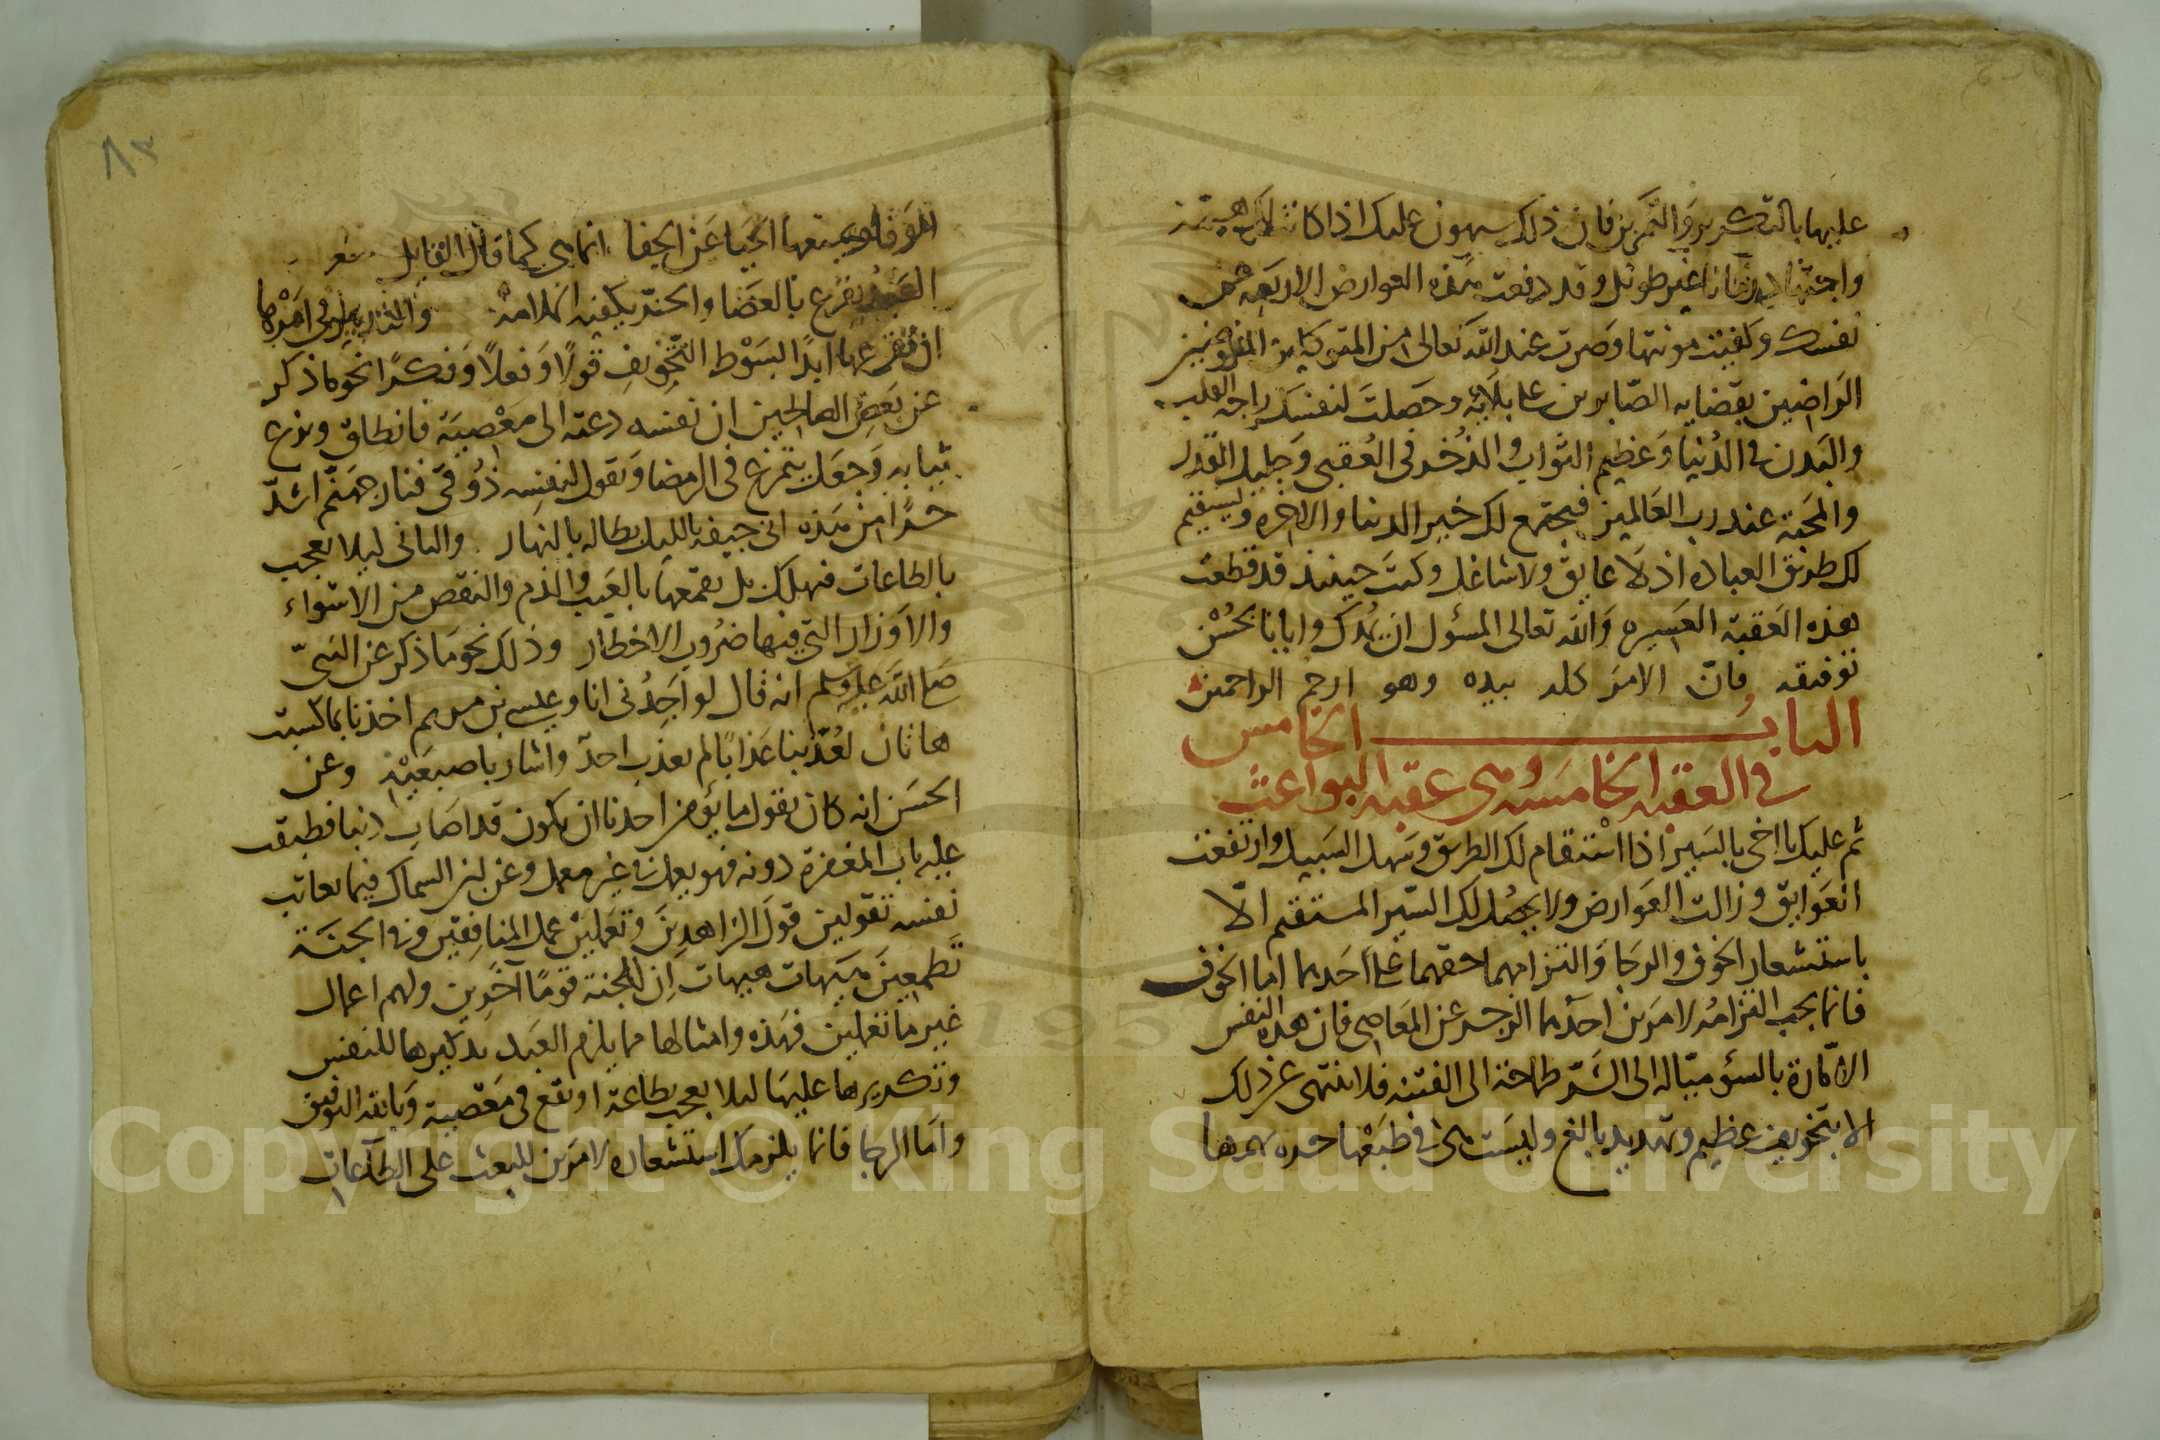 عليها بالتكرير والتمرين فان ذلك سيهون عليك اذا كانت لك همة
واجتهاد زمانا غير طويل وقد دفعت هذه العوارض الاربعه عن
نفسك وكفيت مونتها وصرت عند الله تعالى من المتوكلين المفوضين
الراضين بقضايه الصابرين على بلائه وحصلت لنفسك راحة القلب
والبدن في الدنيا وعظيم الثواب والذخر في العقبى وجليل القدر
والمحبة عند رب العالمين فيجتمع لك خير الدنيا والاخره ويستقيم
لك طريق العباده اذ لا عايق ولا شاغل وكنت حينئذ قد قطعت
هذه العقبة العسيره والله تعالى المسؤل ان يمدك وايانا بحسن
توفيقه فان الامر كله بيده وهو ارحم الراحمين
الباب الخامس
في العقبه الخامسه وهي عقبه البواعث
ثم عليك يا اخي بالسير اذا استقام لك الطريق وسهل السبيل وارتفعت
العوايق وزالت العوارض ولا يحصل لك السير المستقيم الا
باستشعار الخوف والرجا والتزامهما حقهما على احدهما اما الخوف
فانما يجب التزامه لامرين احدهما الزجر عن المعاصي فان هذه النفس
الامارة بالسؤ ميالة الى الشر طماحة الى الفتنه فلا تنتهى عن ذلك
الا بتخويف عظيم وتهديد بالغ وليست هي في طبعها حره
٨٢
الوفا ويمنعها الحيا عن الجفا انما هي كما قال القايل شعر
العبد يقرع بالعصا والحر يكفيه الملامة والتدبير في امرها
ان تقرعها ابدا بسوط التخويف قولا وفعلا وفكرا نحو ما ذكر
عن بعض الصالحين ان نفسه دعته الى معصية فانطلق ونزع
ثيابه وجعل يتمرغ في الرمضا ويقول لنفسه ذوقي فنار جهنم اشد
حرا من هذه اي جيفة بالليل بطالة بالنهار والثاني ليلا يعجب
بالطاعات فيهلك بل يقمعها بالعيب والذم والنقص من الاسواء
والاوزار التي فيها ضروب الاخطار وذلك نحو ما ذكر عن النبي
صلى الله عليه وسلم انه قال لو اجدني انا وعيسى بن مريم اخذنا بما كسبت
هاتان لعذبنا عذابا لم يعذب احد واشار باصبعيه وعن
الحسن انه كان يقول ما يؤمن احدنا ان يكون قد اصاب ذنبا فطبقت
عليه باب المغفرة دونه فهو يعمل في غير معمل وعن ابن السماك فيما يعاتب
نفسه تقولين قول الزاهدين وتعملين عمل المنافقين وفي الجنة
تطمعين هيهات هيهات ان للجنة قوما آخرين ولهم اعمال
غير ما تعملين فهذه وامثالها مما يلزم العبد تذكيرها للنفس
وتكريرها عليها ليلا يعجب بطاعة او تقع في معصية وبالله التوفيق
واما الرجا فانما يلزمك استشعاره لامرين للبعث على الطاعات
Copyright © King Saud University
1957